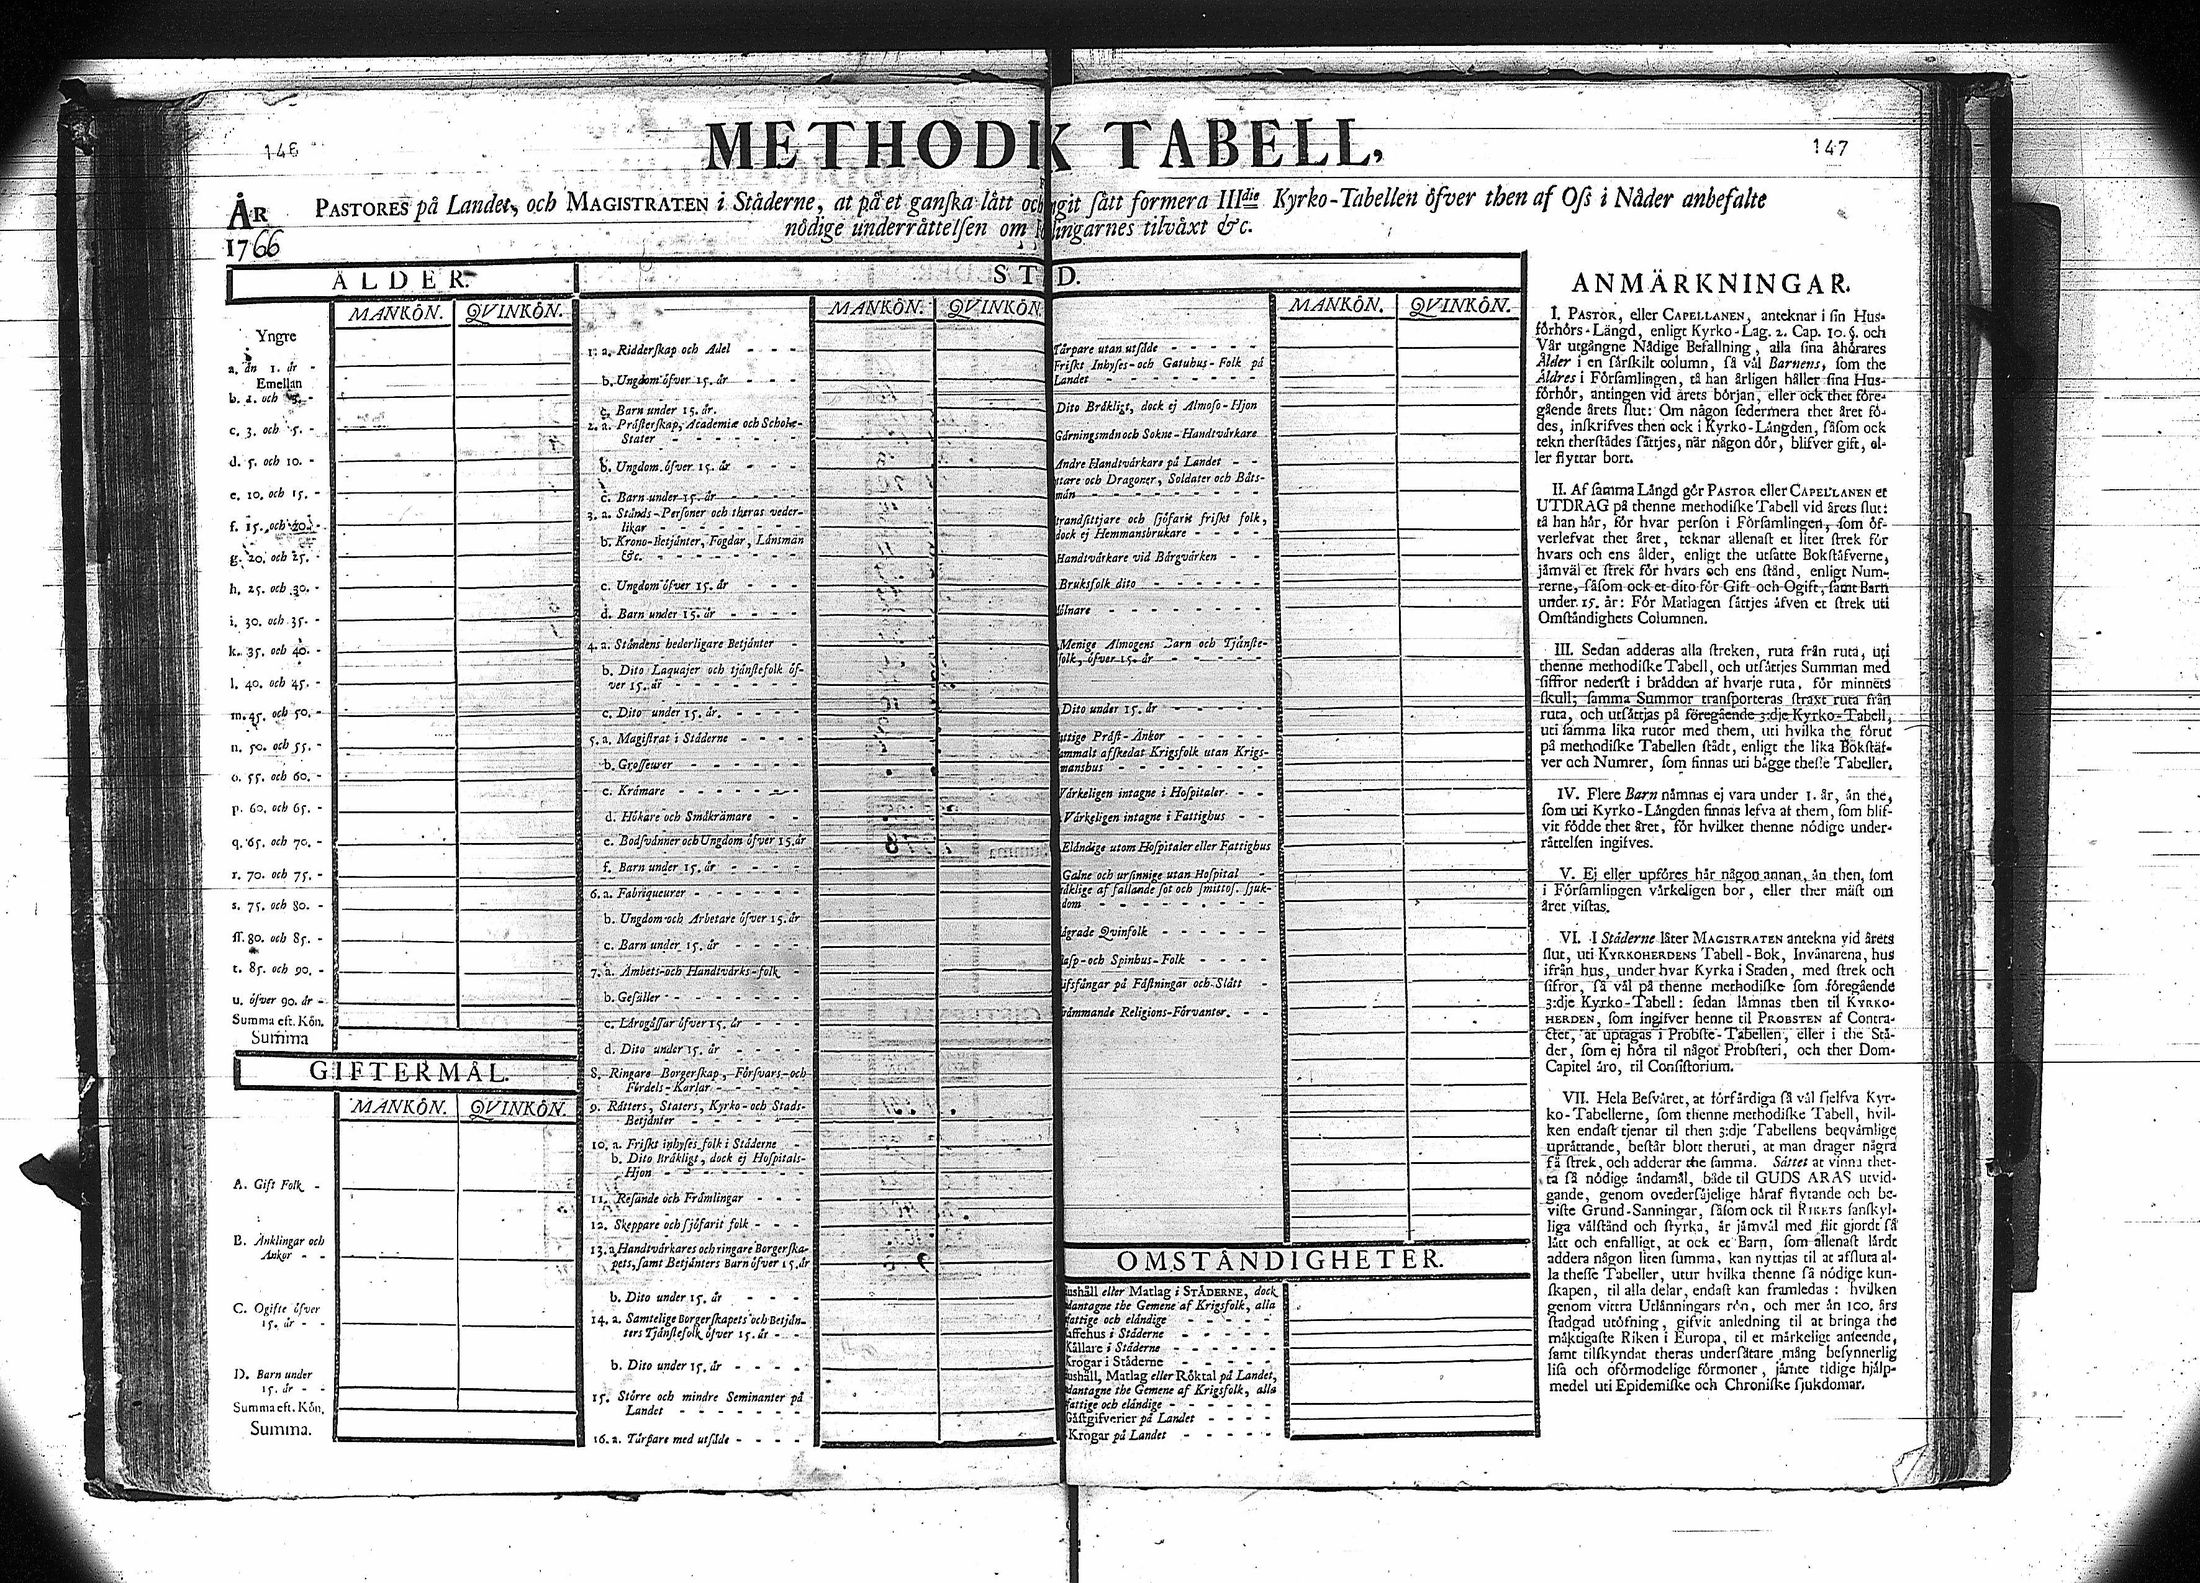 146
METHODIK TABELL,
147
ÅR
1766
PASTORES på Landet, och MAGISTRATEN i Städerne, at på et ganſka lått och ſått formera IIIdie Kyrko-Tabellen öfver then af Oſs i Nåder anbefalte
nödige underråttelſen om tilvåxt &c.
ÅLDER.
MANKÖN. QVINKÖN.
Yngre
a. ån 1. år -
Emellan
b. 1. och 3. -
c. 3. och 5. -
d. 5. och 10. -
e. 10. och 15. -
f. 15. och 20. -
g. 20. och 25. -
h. 25. och 30. -
i. 30. och 35. -
k. 35. och 40. -
l. 40. och 45. -
m. 45. och 50. -
n. 50. och 55. -
o. 55. och 60. -
p. 60. och 65. -
q. 65. och 70. -
r. 70. och 75. -
s. 75. och 80. -
ſſ. 80. och 85. -
t. 85. och 90. -
u. öfver 90. år -
Summa eft. Kön.
Summa
GIFTERMÅL.
MANKÖN. QVINKÖN.
A. Gift Folk -
B. Änklingar och
Änkor - -
C. Ogifte öfver
15. år - -
D. Barn under
15. år - -
Summa eft. Kön.
Summa.
ST D.
MANKÖN. QVINKÖN.
1. a. Ridderſkap och Adel - - -
b. Ungdom öfver 15. år - - -
c. Barn under 15. år.
2. a. Pråſterſkap, Academiæ och Schole-
Stater - - - - - -
b. Ungdom öfver 15. år - - -
c. Barn under 15. år - - - -
3. a. Stånds-Perſoner och theras veder-
likar - - - - - - -
b. Krono-Betjånter, Fogdar, Länsmån
&c. - - - - - -
c. Ungdom öfver 15. år - - - -
d. Barn under 15. år - - - -
4. a. Ståndens hederligare Betjånter -
b. Dito Laquajer och tjånſtefolk öf-
ver 15. år - - - - - -
c. Dito under 15. år. - - - -
5. a. Magiſtrat i Ståderne - - - -
b. Groſſeurer - - - - - -
c. Kråmare - - - - - -
d. Hökare och Småkråmare - - -
e. Bodſvånner och Ungdom öfver 15. år
f. Barn under 15. år. - - - -
6. a. Fabriqueurer - - - - - -
b. Ungdom och Arbetare öfver 15. år
c. Barn under 15. år - - - -
7. a. Åmbets-och Handtvårks-folk -
b. Geſåller - - - - - - -
c. Lårogåſſar öfver 15. år - - -
d. Dito under 15. år - - - -
8. Ringare Borgerſkap, Förſvars-och
Fördels-Karlar - - - - -
9. Råtters, Staters, Kyrko-och Stads-
Betjånter - - - - - -
10. a. Friſkt inhyſes folk i Ståderne -
b. Dito Bråkligt, dock ej Hoſpitals-
Hjon - - - - - - -
11. Reſande och Fråmlingar - - -
12. Skeppare och ſjöfarit folk - - -
13. a. Handtvårkares och ringare Borgerſka-
pets, ſamt Betjånters Barn öfver 15. år
b. Dito under 15. år - - -
14. a. Samtelige Borgerſkapets och Betjån-
ters Tjånſtefolk öfver 15. år - -
b. Dito under 15. år - - - -
15. Större och mindre Seminanter på
Landet - - - - - -
16. a. Torpare med utſåde - - - -
MANKÖN. QVINKÖN.
Torpare utan utſåde - - - - -
Friſkt Inhyſes-och Gatuhus-Folk på
Landet - - - - - - -
Dito Bråkligt, dock ej Almoſo-Hjon
Gårningsmån och Sokne-Handtvårkare
Andre Handtvårkare på Landet - -
och Dragoner, Soldater och Båts-
mån - - - - - - -
och ſjöfarit friſkt folk,
dock ej Hemmansbrukare - - - -
Handtvårkare vid Bårgvårken - -
Bruksfolk dito - - - - - -
Menige Almogens Barn och Tjånſte-
folk, öfver 15. år - - - - -
Dito under 15. år - - - - -
Pråſt-Änkor - - - - -
afſkedat Krigsfolk utan Krigs-
manshus - - - - - - -
Vårkeligen intagne i Hoſpitaler - -
Vårkeligen intagne i Fattighus - -
Elåndige utom Hoſpitaler eller Fattighus
Galne och urſinnige utan Hoſpital -
af fallande ſot och ſmittoſ. ſjuk-
dom - - - - - - - -
Qvinfolk - - - - - -
och Spinhus-Folk - - - -
på Fåſtningar och Slått -
Religions-Förvanter. - -
OMSTÅNDIGHETER.
eller Matlag i STÅDERNE, dock
the Gemene af Krigsfolk, alla
fattige och elåndige - - - - -
i Ståderne - - - - -
Kållare i Ståderne - - - - -
Krogar i Ståderne - - - - -
Matlag eller Röktal på Landet,
the Gemene af Krigsfolk, alla
fattige och elåndige - - - - -
Gåſtgifverier på Landet - - - -
Krogar på Landet - - - - -
ANMÄRKNINGAR.
I. PASTOR, eller CAPELLANEN, antecknar i ſin Hus-
förhörs-Långd, enligt Kyrko-Lag. 2. Cap. 10. §. och
Vår utgångne Nådige Befallning, alla ſina åhörares
Ålder i en ſårſkilt column, ſå vål Barnens, ſom the
Äldres i Förſamlingen, tå han årligen håller ſina Hus-
förhör, antingen vid årets början, eller ock thet före-
gående årets ſlut: Om någon ſedermera thet året fö-
des, inſkrifves then ock i Kyrko-Långden, ſåſom ock
tekn therſtådes ſåttjes, når någon dör, blifver gift, el-
ler flyttar bort.
II. Af ſamma Långd gör PASTOR eller CAPELLANEN et
UTDRAG på thenne methodiſke Tabell vid årets ſlut:
tå han hår, för hvar perſon i Förſamlingen, ſom öf-
verlefvat thet året, teknar allenaſt et litet ſtrek för
hvars och ens ålder, enligt the utſatte Bokſtåfverne,
jåmvål et ſtrek för hvars och ens ſtånd, enligt Num-
rerne, ſåſom ock et dito för Gift och Ogift, ſamt Barn
under 15. år: För Matlagen ſåttjes åfven et ſtrek uti
Omſtåndighets Columnen.
III. Sedan adderas alla ſtreken, ruta från ruta, uti
thenne methodiſke Tabell, och utſåttjes Summan med
ſiffror nederſt i brådden af hvarje ruta, för minnets
ſkull; ſamma Summor transporteras ſtraxt ruta från
ruta, och utſåttjas på föregående 3:dje Kyrko-Tabell,
uti ſamma lika rutor med them, uti hvilka the förut
på methodiſke Tabellen ſtådt, enligt the lika Bokſtåf-
ver och Numrer, ſom finnas uti bågge theſſe Tabeller.
IV. Flere Barn nåmnas ej vara under 1. år, ån the,
ſom uti Kyrko-Långden finnas lefva af them, ſom blif-
vit födde thet året, för hvilket thenne nödige under-
råttelſen ingifves.
V. Ej eller upföres hår någon annan, ån then, ſom
i Förſamlingen vårkeligen bor, eller ther måſt om
året viſtas.
VI. I Ståderne låter MAGISTRATEN antekna vid årets
ſlut, uti KYRKOHERDENS Tabell-Bok, Invånarena, hus
ifrån hus, under hvar Kyrka i Staden, med ſtrek och
ſifror, ſå vål på thenne methodiſke ſom föregående
3:dje Kyrko-Tabell: ſedan låmnas then til KYRKO-
HERDEN, ſom ingifver henne til PROBSTEN af Contra-
ctet, at uptagas i Probſte-Tabellen, eller i the Stå-
der, ſom ej höra til något Probſteri, och ther Dom-
Capitel åro, til Conſiſtorium.
VII. Hela Beſvåret, at förfårdiga ſå vål ſjelfva Kyr-
ko-Tabellerne, ſom thenne methodiſke Tabell, hvil-
ken endaſt tjenar til then 3:dje Tabellens beqvåmlige
upråttande, beſtår blott theruti, at man drager några
få ſtrek, och adderar the ſamma. Såttet at vinna thet-
ta ſå nödige åndamål, både til GUDS ÅRAS utvid-
gande, genom ovederſåjelige håraf flytande och be-
viſte Grund-Sanningar, ſåſom ock til RIKETS ſanſkyl-
liga vålſtånd och ſtyrka, år jåmvål med flit gjordt ſå
lått och enfalligt, at ock et Barn, ſom allenaſt lårdt
addera någon liten ſumma, kan nyttjas til at afſluta al-
la theſſe Tabeller, utur hvilka thenne ſå nödige kun-
ſkapen, til alla delar, endaſt kan framledas: hvilken
genom vittra Utlånningars rön, och mer ån 100. års
ſtadgad utöfning, gifvit anledning til at bringa the
måktigaſte Riken i Europa, til et mårkeligt anſeende,
ſamt tilſkyndat theras underſåtare mång beſynnerlig
liſa och oförmodelige förmoner, jåmte tidige hjålp-
medel uti Epidemiſke och Chroniſke ſjukdomar.